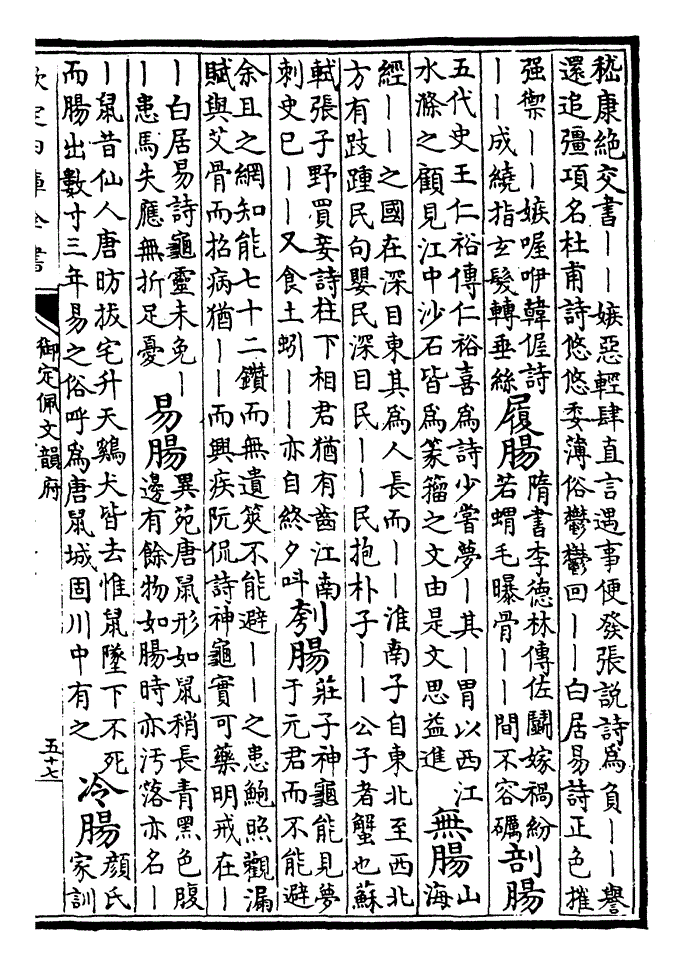 嵇康絶交書——嫉惡輕肆直言遇事便發張說詩為負——譽
還追彊項名杜甫詩悠悠委薄俗鬱鬱回——白居易詩正色摧
强禦——嫉喔咿韓偓詩
——成繞指玄髮轉垂絲
履腸
隋書李德林傳佐鬭嫁禍紛
若蝟毛曝骨——間不容礪
剖腸
五代史王仁裕傳仁裕喜為詩少嘗夢—其—胃以西江
水滌之顧見江中沙石皆為篆籀之文由是文思益進
無腸
山
海
經——之國在深目東其為人長而——淮南子自東北至西北
方有跂踵民句嬰民深目民——民抱朴子——公子者蟹也蘇
軾張子野買妾詩柱下相君猶有齒江南
刺史巳——又食土蚓——亦自終夕叫
刳腸
莊子神龜能見夢
于元君而不能避
余且之網知能七十二鑽而無遺筴不能避——之患鮑照觀漏
賦與艾骨而招病猶——而興疾阮侃詩神龜實可藥明戒在—
—白居易詩龜靈未免—
—患馬失應無折足憂
易腸
異苑唐鼠形如鼠稍長青黑色腹
邊有餘物如腸時亦汚落亦名—
—鼠昔仙人唐昉拔宅升天鷄犬皆去惟鼠墜下不死
而腸出數寸三年易之俗呼為唐鼠城固川中有之
冷腸
顔氏
家訓
欽定四庫全書
御定佩文韻府
五十七